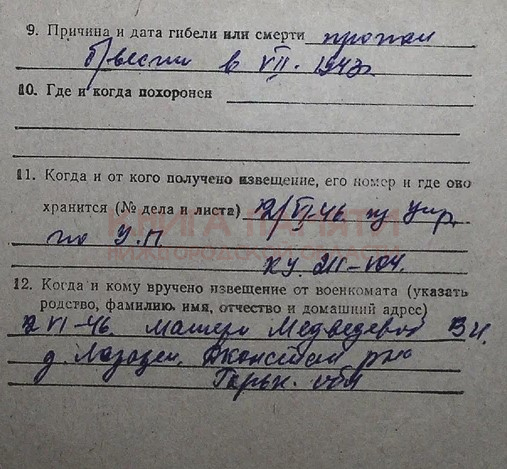 9. Причина и дата гибели или смерти пропал
б/вести в VII. 1943г.
10. Где и когда похоронен
11. Когда и от кого получено извещение, его номер и где оно
хранится (№ дела и листа) 2/VI-46 из Упр.
по У.П.
12. Когда и кому вручено извещение от военкомата (указать
родство, фамилию, имя, отчество и домашний адрес)
2 VI-46. матери Медведевой
д. рно
Горьк. обл
КНИГА ПАМЯТИ
НИЖЕГОРОДСКОЙ ОБЛАСТИ